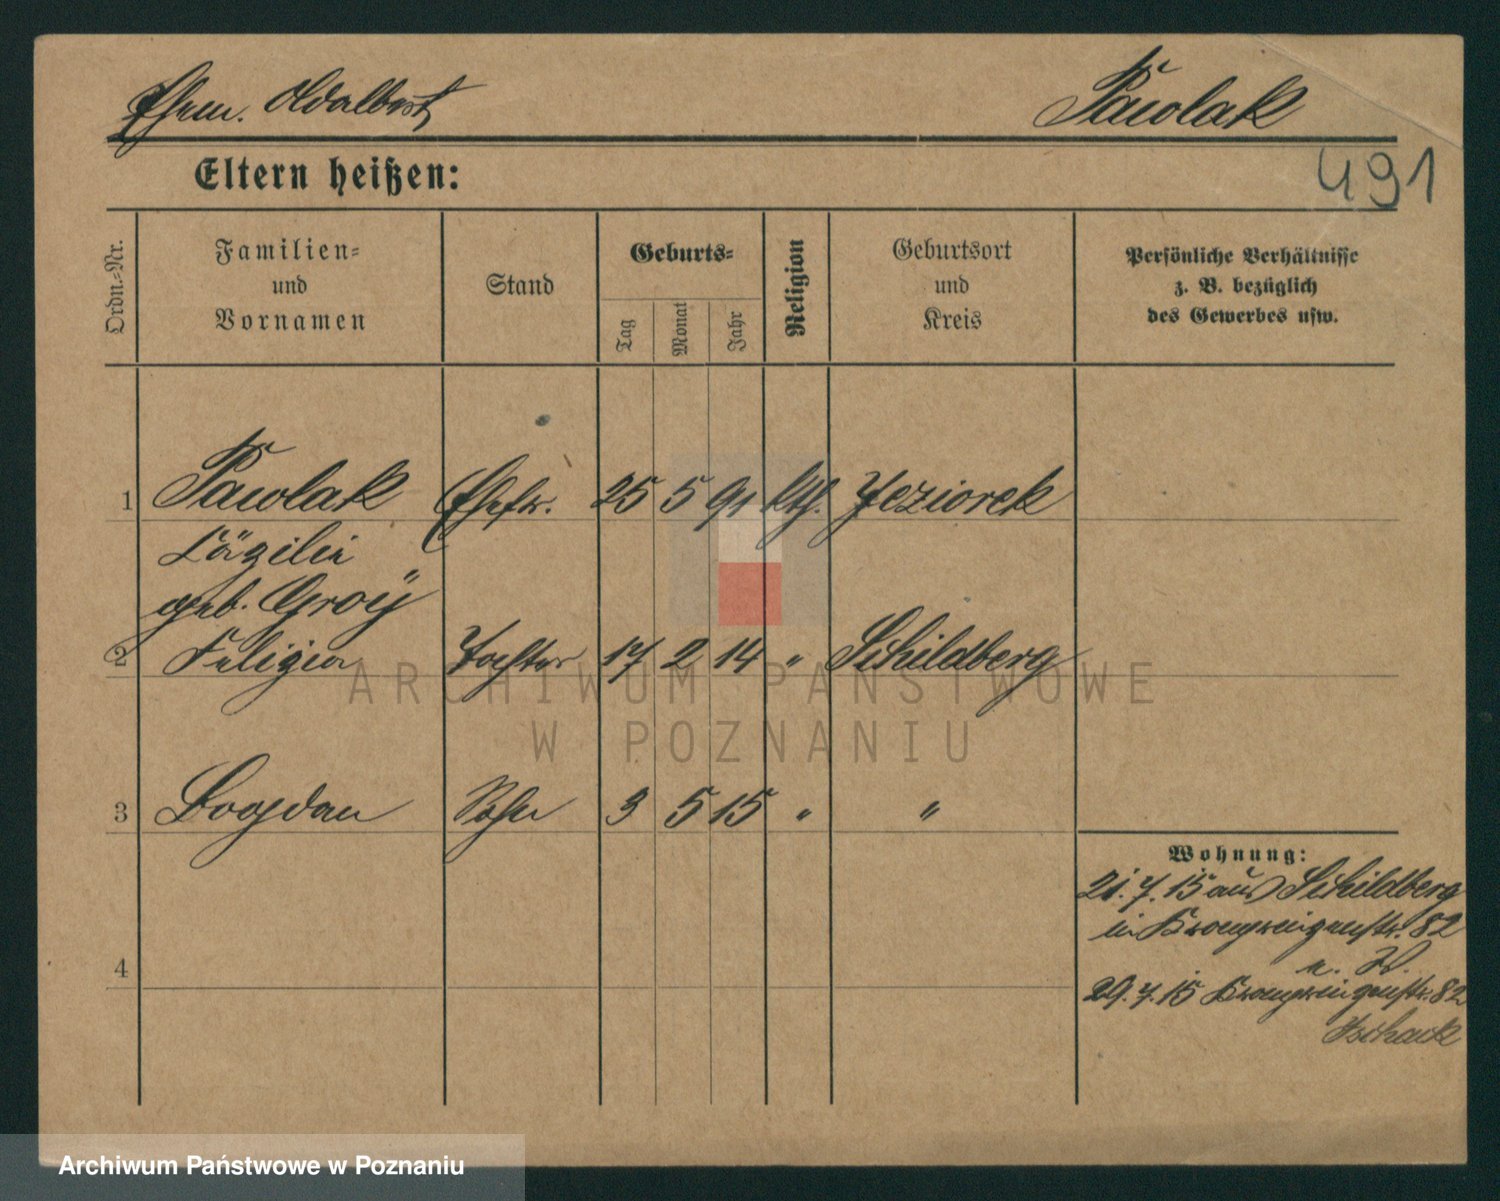 Ehem. Adalbert Pawlak
Eltern heißen:
491
Ordn.-Nr.
Familien-
und
Vornamen
Stand
Geburts-
Tag
Monat
Jahr
Religion
Geburtsort
und
Kreis
Persönliche Verhältnisse
z. B. bezüglich
des Gewerbes usw.
1 Pawlak Ehefr. 25 5 91 kth. Jeziorek
Cäzilie
geb. Groÿ
2 Felizia Tochter 17 2 14 " Schildberg
3 Bogdan Sohn 3 5 15 " "
Wohnung:
21.7.15 aus Schildberg
in Kronprinzenstr. 82
4
29.7.15 Kronprinzenstr. 82
ARCHIWUM PAŃSTWOWE
W POZNANIU
Archiwum Państwowe w Poznaniu